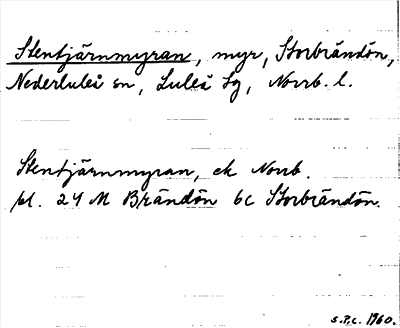 Stentjärnmyran, myr, Storbrändön,
Nederluleå sn, Luleå tg, Norrb. l.
Stentjärnmyran, ek Norrb.
bl. 24 M Brändön 6c Storbrändön.
S.P.C. 1960.